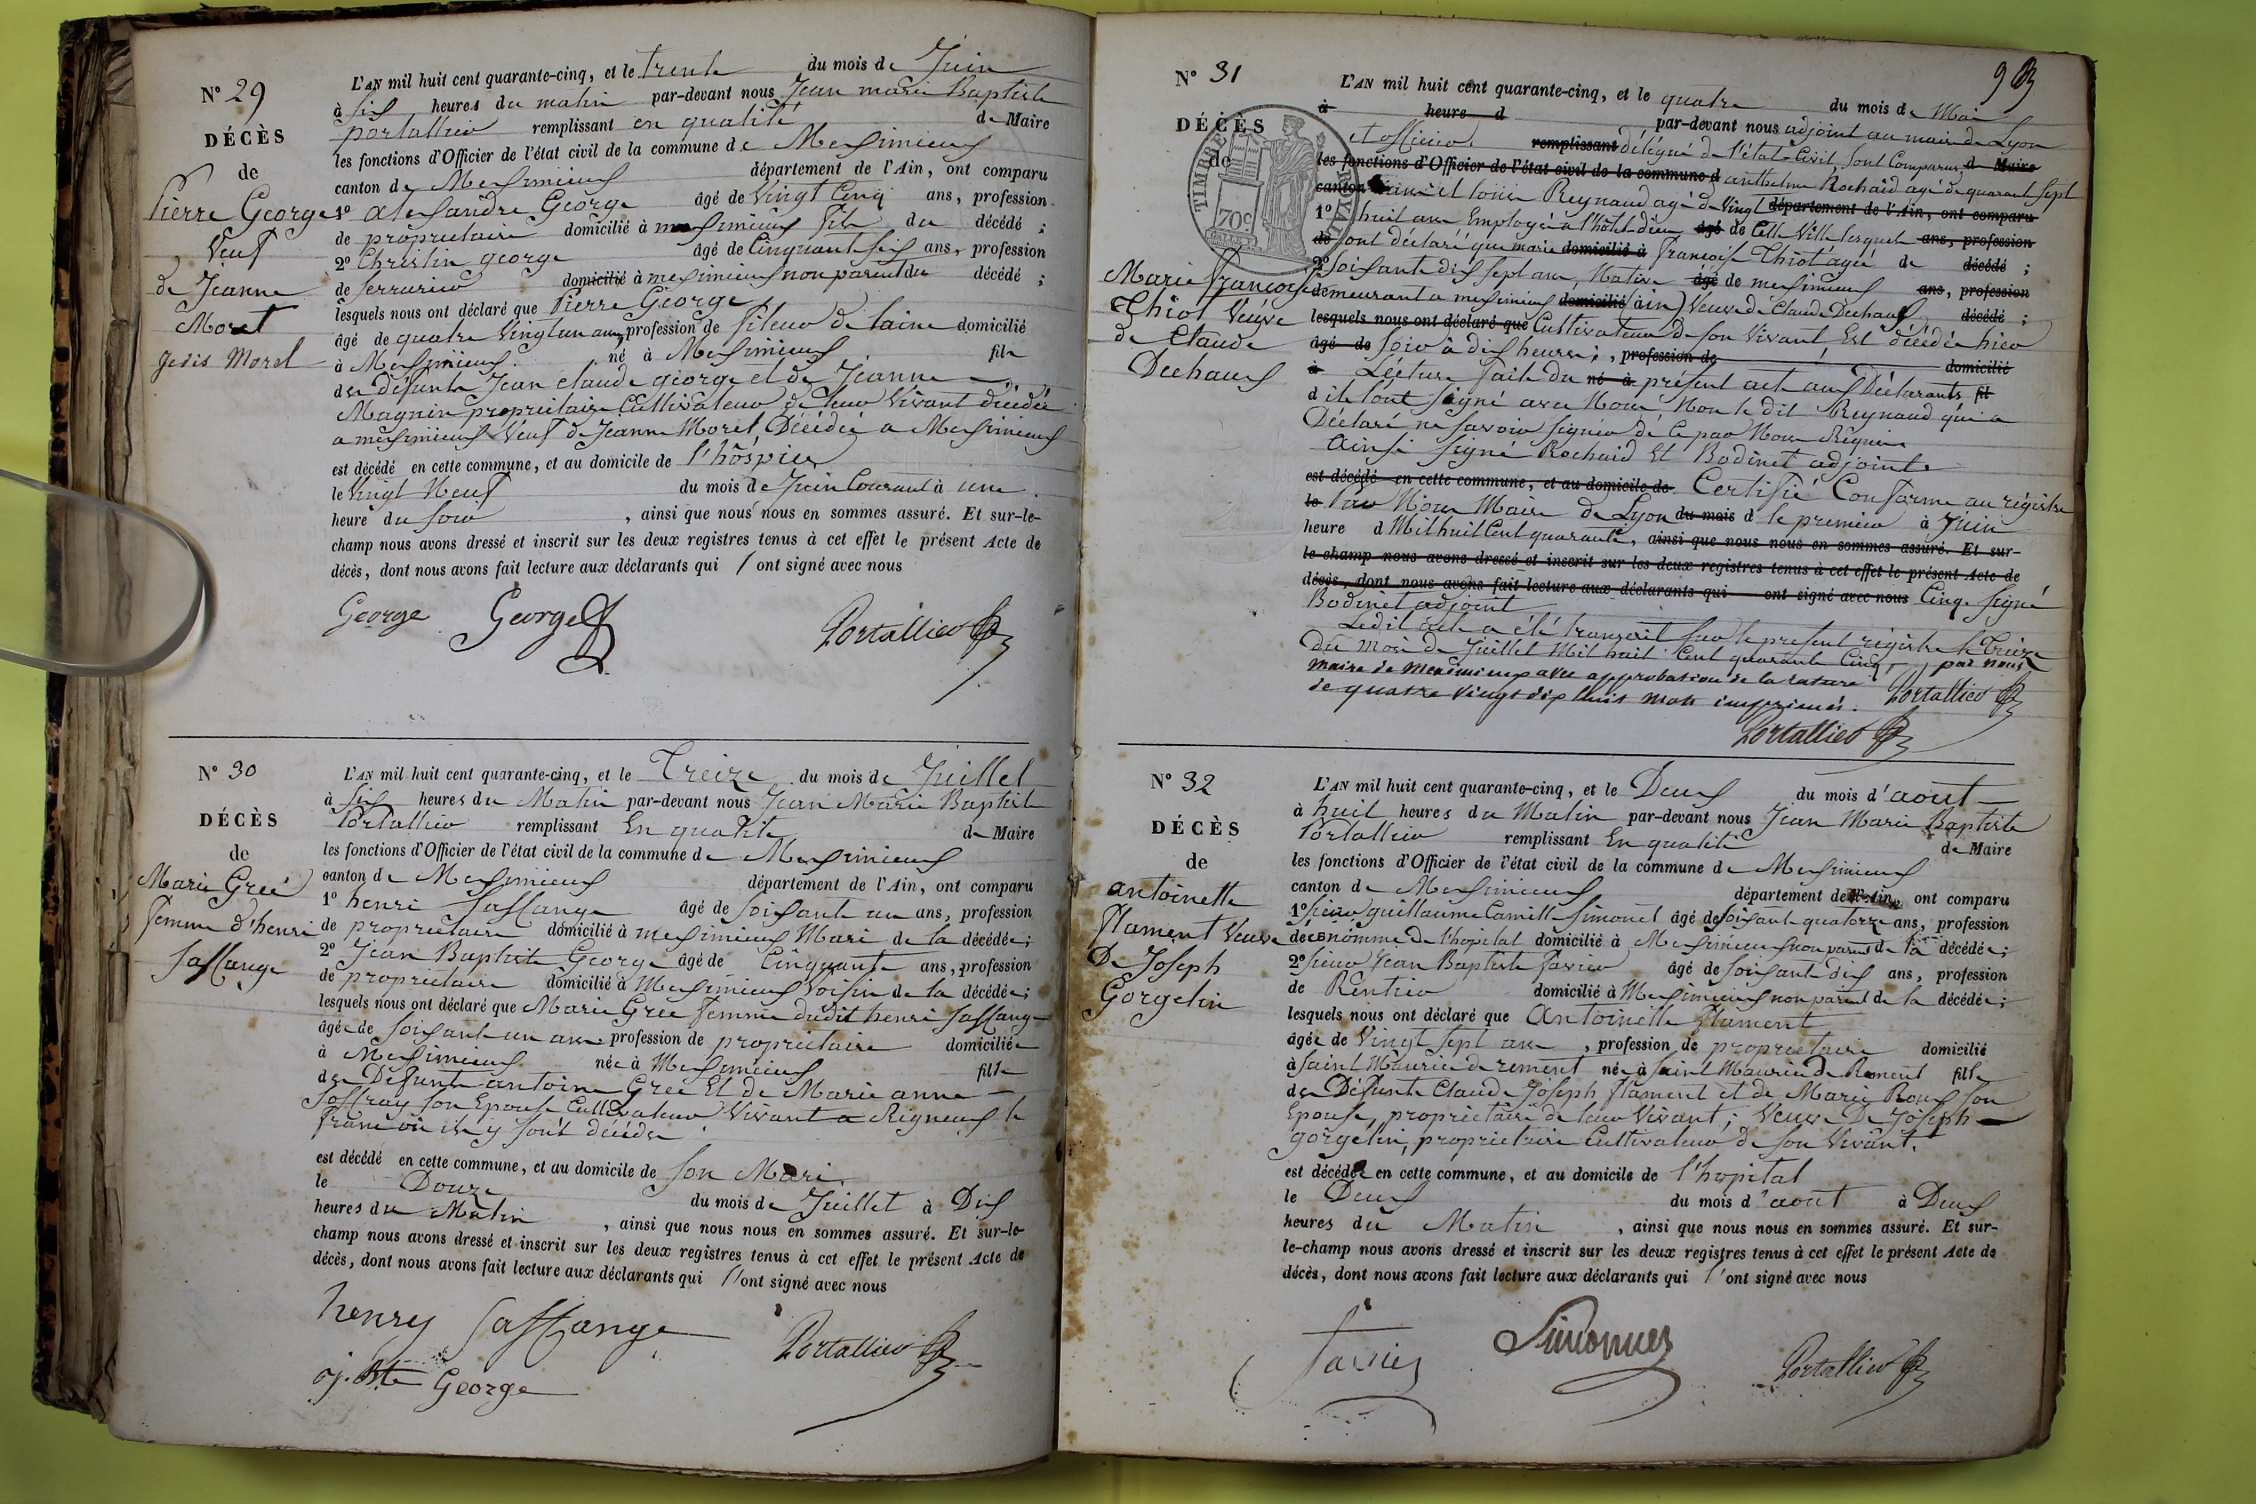 N° 29
DÉCÈS
de
Pierre George
Veuf
de Jeanne
Moret
je dis Morel
L'AN mil huit cent quarante-cinq, et le trente du mois de Juin
à six heures du matin par-devant nous Jean marie Baptiste
portallier remplissant en qualité de Maire
les fonctions d'Officier de l'état civil de la commune de Meximieux
canton de Meximieux département de l'Ain, ont comparu
1° alexandre George âgé de Vingt Cinq ans, profession
de proprietaire domicilié à meximieux fils du décédé ;
2° Christin george âgé de Cinquante six ans, profession
de serrurier domicilié à meximieux non parent du décédé ;
lesquels nous ont déclaré que Pierre George
âgé de quatre Vingt un ans, profession de fileur de laine domicilié
à Meximieux né à Meximieux fils
des Défunts Jean claude george et de Jeanne
Magnin propriétaire Cultivateur de leur Vivant décédés
a meximieux Veuf de Jeanne Morel, Décédée a Meximieux
est décédé en cette commune, et au domicile de l'hôspice
le Vingt Neuf du mois de Juin Courant à une
heure du soir , ainsi que nous nous en sommes assuré. Et sur-le-
champ nous avons dressé et inscrit sur les deux registres tenus à cet effet le présent Acte de
décès, dont nous avons fait lecture aux déclarants qui l'ont signé avec nous
George George Portallier
N° 30
DÉCÈS
de
Marie Greé
femme d'henri
Jassange
L'AN mil huit cent quarante-cinq, et le Treize du mois de Juillet
à six heures du Matin par-devant nous Jean Marie Baptiste
Portallier remplissant En qualité de Maire
les fonctions d'Officier de l'état civil de la commune de Meximieux
canton de Meximieux département de l'Ain, ont comparu
1° henri Jassange âgé de soixante un ans, profession
de propriétaire domicilié à meximieux Mari de la décédée ;
2° Jean Baptiste George âgé de Cinquante ans, profession
de propriétaire domicilié à Meximieux Voisin de la décédée ;
lesquels nous ont déclaré que Marie Greé femme dudit henri Jassange
âgée de soixante un ans profession de propriétaire domiciliée
à Meximieux née à Meximieux fille
des Défunts antoine Greé Et de Marie anne
Joffray son Epouse Cultivateur Vivant a Rigneux le
franc où ils y sont décédés
est décédé en cette commune, et au domicile de son Mari
le Douze du mois de Juillet à Dix
heures du Matin , ainsi que nous nous en sommes assuré. Et sur-le-
champ nous avons dressé et inscrit sur les deux registres tenus à cet effet le présent Acte de
décès, dont nous avons fait lecture aux déclarants qui l'ont signé avec nous
henry Jassange Portallier
George
N° 31
93
DÉCÈS
de
TIMBRE ROYAL
70c.
Marie françoise
Thiot Veuve
de Claude
Dechaux
L'AN mil huit cent quarante-cinq, et le quatre du mois de Mai
à heure d par-devant nous adjoint au maire de Lyon
et officier remplissant délégué de l'état Civil, sont Comparus de Maire
les fonctions d'Officier de l'état civil de la commune d anthelme Rochaid agé de quarante sept
canton ans et louis Reynaud agé de Vingt département de l'Ain, ont comparu
1° huit ans Employés a l'hôtel dieu âgé de Cette Ville lesquels ans, profession
de sont déclaré que marie domicilié à françoise Thiot agée de décédé ;
2° soixante dix sept ans, Native âgé de meximieux ans, profession
demeurant a meximieux domicilié (ain) Veuve de Claude Dechaux décédé ;
lesquels nous ont déclaré que Cultivateur de son Vivant, Est décédée hier
âgé de soir à dix heures ; , profession de domicilié
à Lecture faite du né à présent acte aux Déclarants fil
d ils l'ont signé avec Nous, Non le dit Reynaud qui a
Déclaré ne savoir signer de ce par Nous Requis
ainsi signé Rochaid Et Bodinet adjoint
est décédé en cette commune, et au domicile de Certifié Conforme au régistre
le Par Nous Maire de Lyon du mois d le premier à Juin
heure d Mil huit Cent quarante, ainsi que nous nous en sommes assuré. Et sur-
le-champ nous avons dressé et inscrit sur les deux registres tenus à cet effet le présent Acte de
décès, dont nous avons fait lecture aux déclarants qui ont signé avec nous Cinq. signé
Bodinet adjoint
Ledit acte a été transcrit sur le présent régistre le Treize
du mois de Juillet Mil huit Cent quarante Cinq, par nous
maire de Meximieux avec approbation de la rature
de quatre Vingt dix huit mots imprimés. Portallier
Portallier
N° 32
DÉCÈS
de
antoinette
flament Veuve
De Joseph
Gorgelin
L'AN mil huit cent quarante-cinq, et le Deux du mois d'aout
à huit heures du Matin par-devant nous Jean Marie Baptiste
Portallier remplissant En qualité de Maire
les fonctions d'Officier de l'état civil de la commune de Meximieux
canton de Meximieux département de l'Ain, ont comparu
1° sieur guillaume Camille Simonet âgé de soixante quatorze ans, profession
de économe de l'hopital domicilié à Meximieux non parent de la décédée ;
2° sieur Jean Baptiste favier âgé de soixante dix ans, profession
de Rentier domicilié à Meximieux non parent de la décédée ;
lesquels nous ont déclaré que antoinette flament
âgée de Vingt sept ans , profession de propriétaire domicilié
à saint Maurice de rement née à saint Maurice de Rement fille
des Défunts Claude Joseph flament et de Marie Roux son
Epouse, propriétaire de leur Vivant ; Veuve De Joseph
gorgelin, propriétaire Cultivateur de son Vivant.
est décédée en cette commune, et au domicile de l'hopital
le Deux du mois d'aout à Deux
heures du Matin , ainsi que nous nous en sommes assuré. Et sur-
le-champ nous avons dressé et inscrit sur les deux registres tenus à cet effet le présent Acte de
décès, dont nous avons fait lecture aux déclarants qui l'ont signé avec nous
favier Simonet Portallier